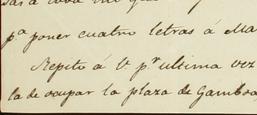 pª poner cuatro letras á Ma
Repito á V pr ultima vez
la de ocupar la plaza de Gamboa